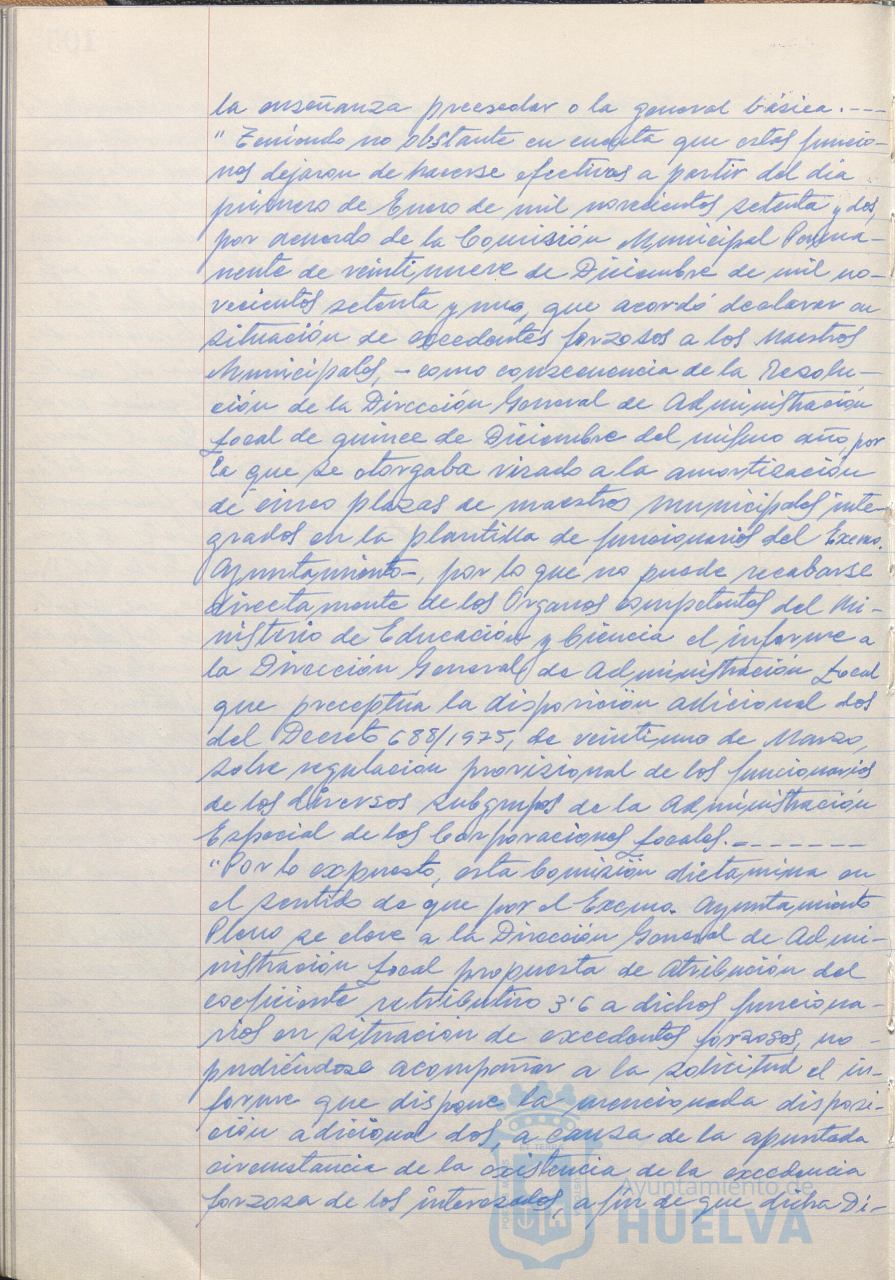 la enseñanza preescolar o la general básica.---
" Teniendo no obstante en cuenta que estos funcio-
nes dejaron de hacerse efectivas a partir del día
primero de Enero de mil novecientos setenta y dos,
por acuerdo de la Comisión Municipal Perma-
nente de veintinueve de Diciembre de mil no-
vecientos setenta y uno, que acordó declarar en
situación de excedentes forzosos a los Maestros
Municipales, - como consecuencia de la Resolu-
ción de la Dirección General de Administración
Local de quince de Diciembre del mismo año, por
la que se otorgaba visado a la amortización
de cinco plazas de maestros municipales inte-
grados en la plantilla de funcionarios del Excmo.
Ayuntamiento-, por lo que no puede recabarse
directamente de los Organos competentes del Mi-
nisterio de Educación y Ciencia el informe a
la Dirección General de Administración Local
que preceptúa la disposición adicional dos
del Decreto 688/1975, de veintiuno de Marzo,
sobre regulación provisional de los funcionarios
de los diversos subgrupos de la Administración
Especial de las Corporaciones Locales.-------
"Por lo expuesto, esta Comisión dictamina en
el sentido de que por el Excmo. Ayuntamiento
Pleno se eleve a la Dirección General de Admi-
nistración Local propuesta de Atribución del
coeficiente retributivo 3'6 a dichos funciona-
rios en situación de excedentes forzosos, no
pudiéndose acompañar a la solicitud el in-
forme que dispone la mencionada disposi-
ción adicional dos a causa de la apuntada
circunstancia de la existencia de la excedencia
forzosa de los interesados, a fin de que dicha Di-
Ayuntamiento de
HUELVA